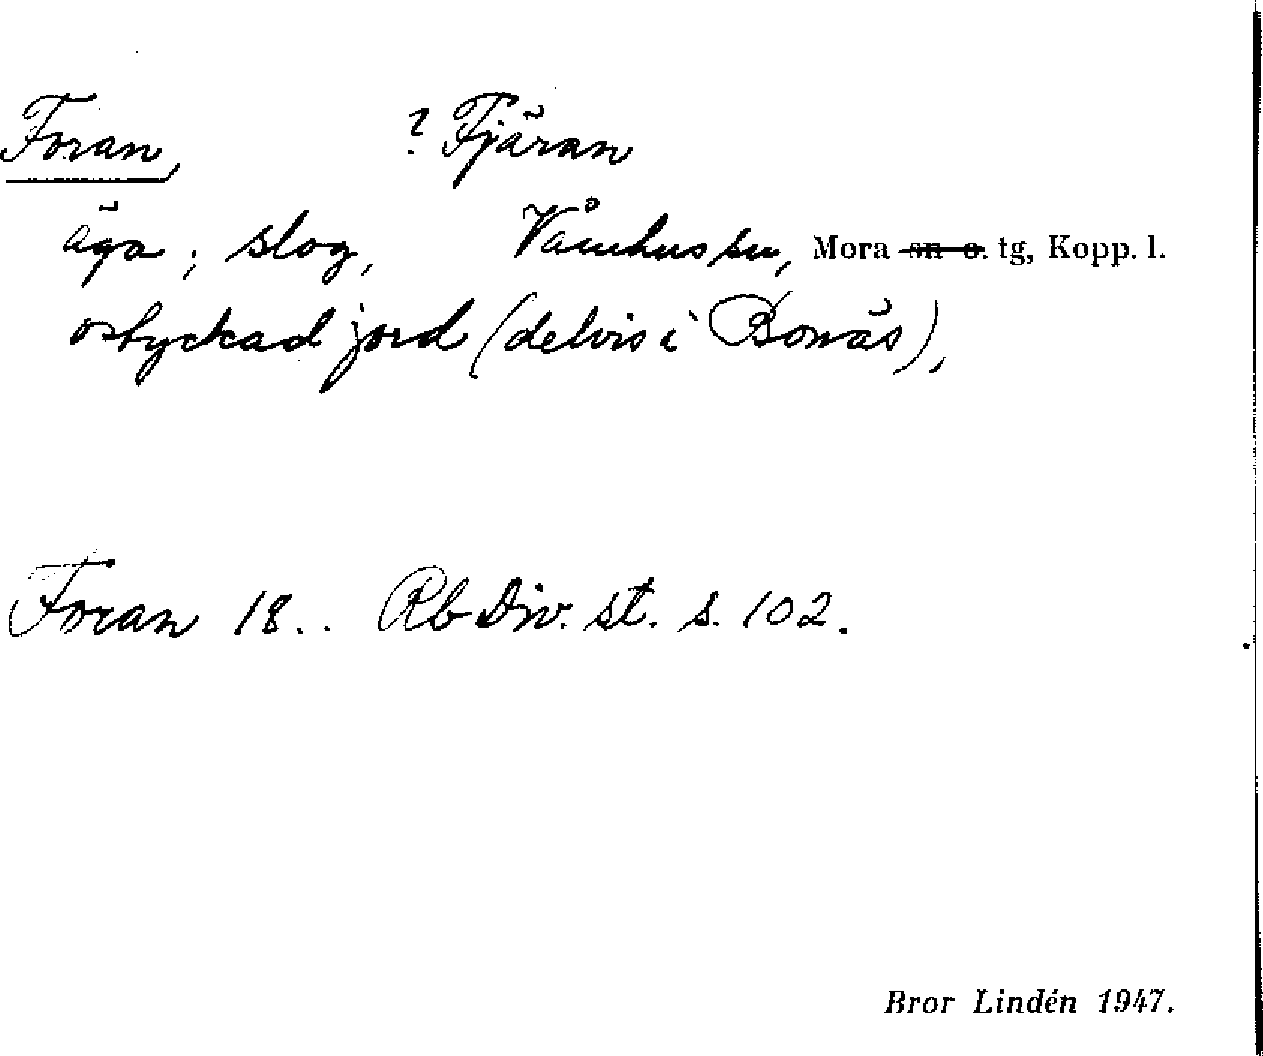 Foran, ? Fjäran
äga; slog, Våmhus sn, Mora sn o. tg, Kopp. l.
ostyckad jord (delvis i Bonäs),
Foran 18.. Rb Div. st. s. 102.
Bror Lindén 1947.